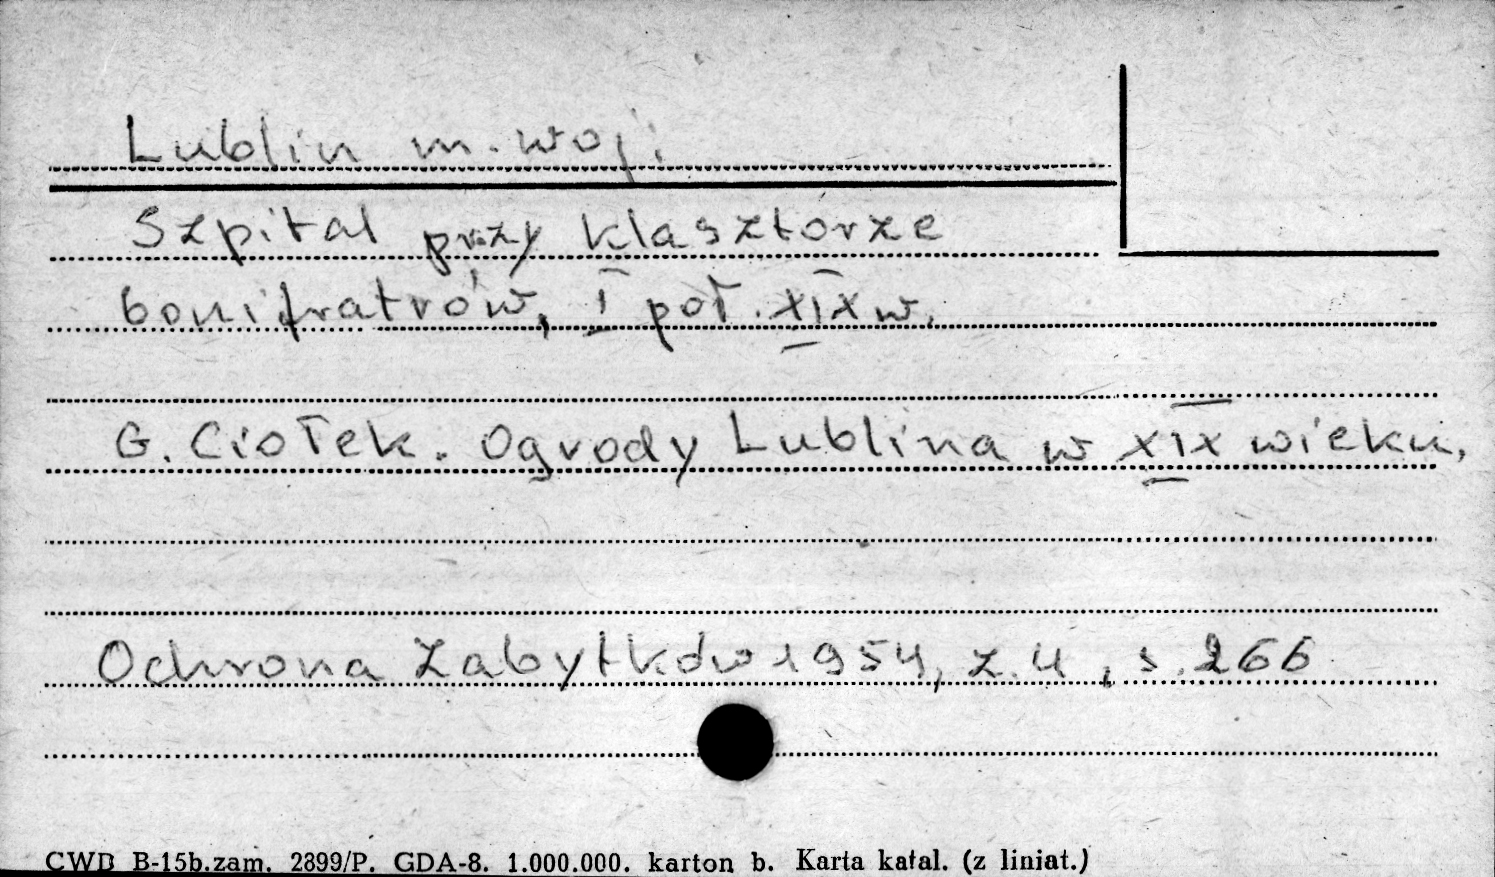 Lublin m. woj.
Szpital przy klasztorze
bonifratrów, I poł. XIX w.
G. Ciołek. Ogrody Lublina w XIX wieku,
Ochrona Zabytków 1954, z. 4, s. 266
CWD B-15b.zam. 2899/P. GDA-8. 1.000.000. karton b. Karta katal. (z liniat.)